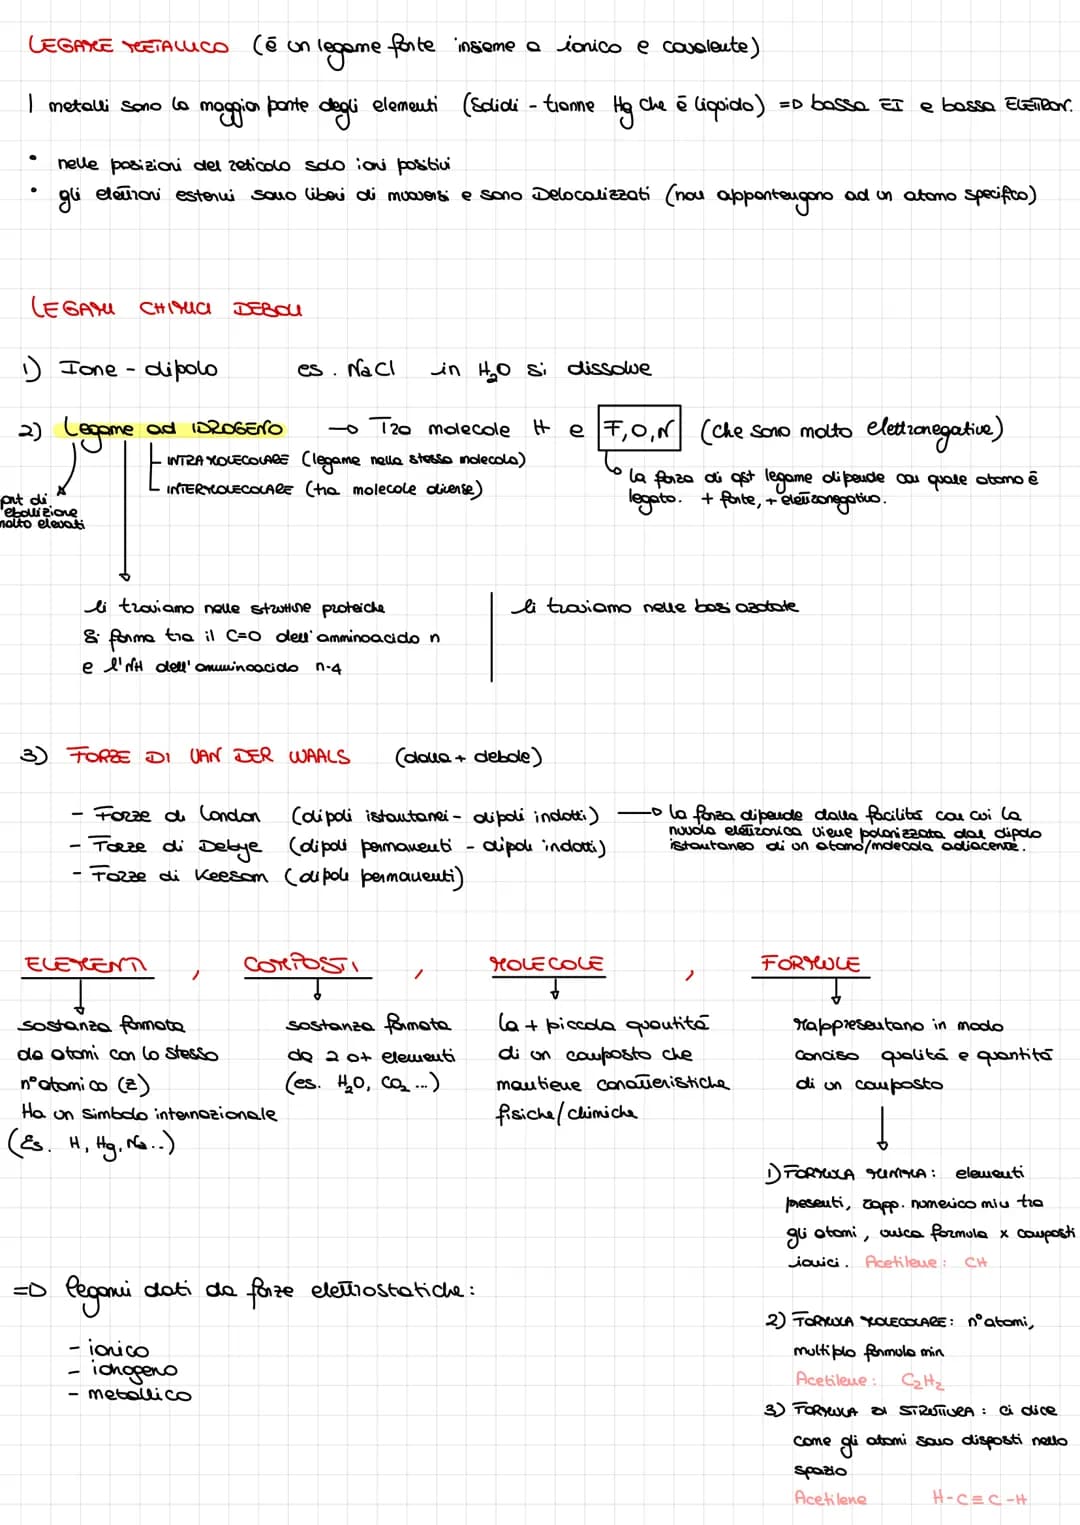 LEGAME METALLICO (è un legame forte insieme a ionico e covalente)
I metalli sono la maggior parte degli elementi (Solidi - tranne Hg che è liquido) => bassa EI e bassa ELETTRON.
• nelle posizioni del reticolo solo ioni positivi
• gli elettroni esterni sono liberi di muoversi e sono Delocalizzati (non appartengono ad un atomo specifico)
LEGAMI CHIMICI DEBOLI
1) Ione - dipolo es. NaCl in H₂O si dissolve
2) Legame ad IDROGENO → Tra molecole H e F,O,N (che sono molto elettronegative)
INTRAMOLECOLARE (legame nella stessa molecola)
INTERMOLECOLARE (tra molecole diverse)
la forza di qst legame dipende con quale atomo è
legato. + forte, + elettronegativo.
pnt di
ebollizione
molto elevati
li troviamo nelle strutture proteiche
Si forma tra il C=O dell'amminoacido n
e l'NH dell'amminoacido n-4
li troviamo nelle basi azotate
3) FORZE DI VAN DER WAALS (dalla + debole)
- Forze di London (dipoli istantanei - dipoli indotti) → la forza dipende dalla facilità con cui la
nuvola elettronica viene polarizzata dal dipolo
istantaneo di un atomo/molecola adiacente.
- Forze di Debye (dipoli permanenti - dipoli indotti)
- Forze di Keesom (dipoli permanenti)
ELEMENTI , COMPOSTI , MOLECOLE , FORMULE
sostanza formata
da atomi con lo stesso
n°atomico (Z)
Ha un simbolo internazionale
(Es. H, Hg, Na..)
sostanza formata
da 2 o+ elementi
(es. H₂O, CO₂ ...)
la + piccola quantità
di un composto che
mantiene caratteristiche
fisiche/chimiche
Rappresentano in modo
conciso qualità e quantità
di un composto
1) FORMULA MINIMA: elementi
presenti, rapp. numerico min tra
gli atomi, unica formula x composti
ionici. Acetilene: CH
2) FORMULA MOLECOLARE: n°atomi,
multiplo formula min
Acetilene: C₂H₂
3) FORMULA DI STRUTTURA: ci dice
come gli atomi sono disposti nello
spazio
Acetilene H-C≡C-H
=> legami dati da forze elettrostatiche:
- ionico
- idrogeno
- metallico